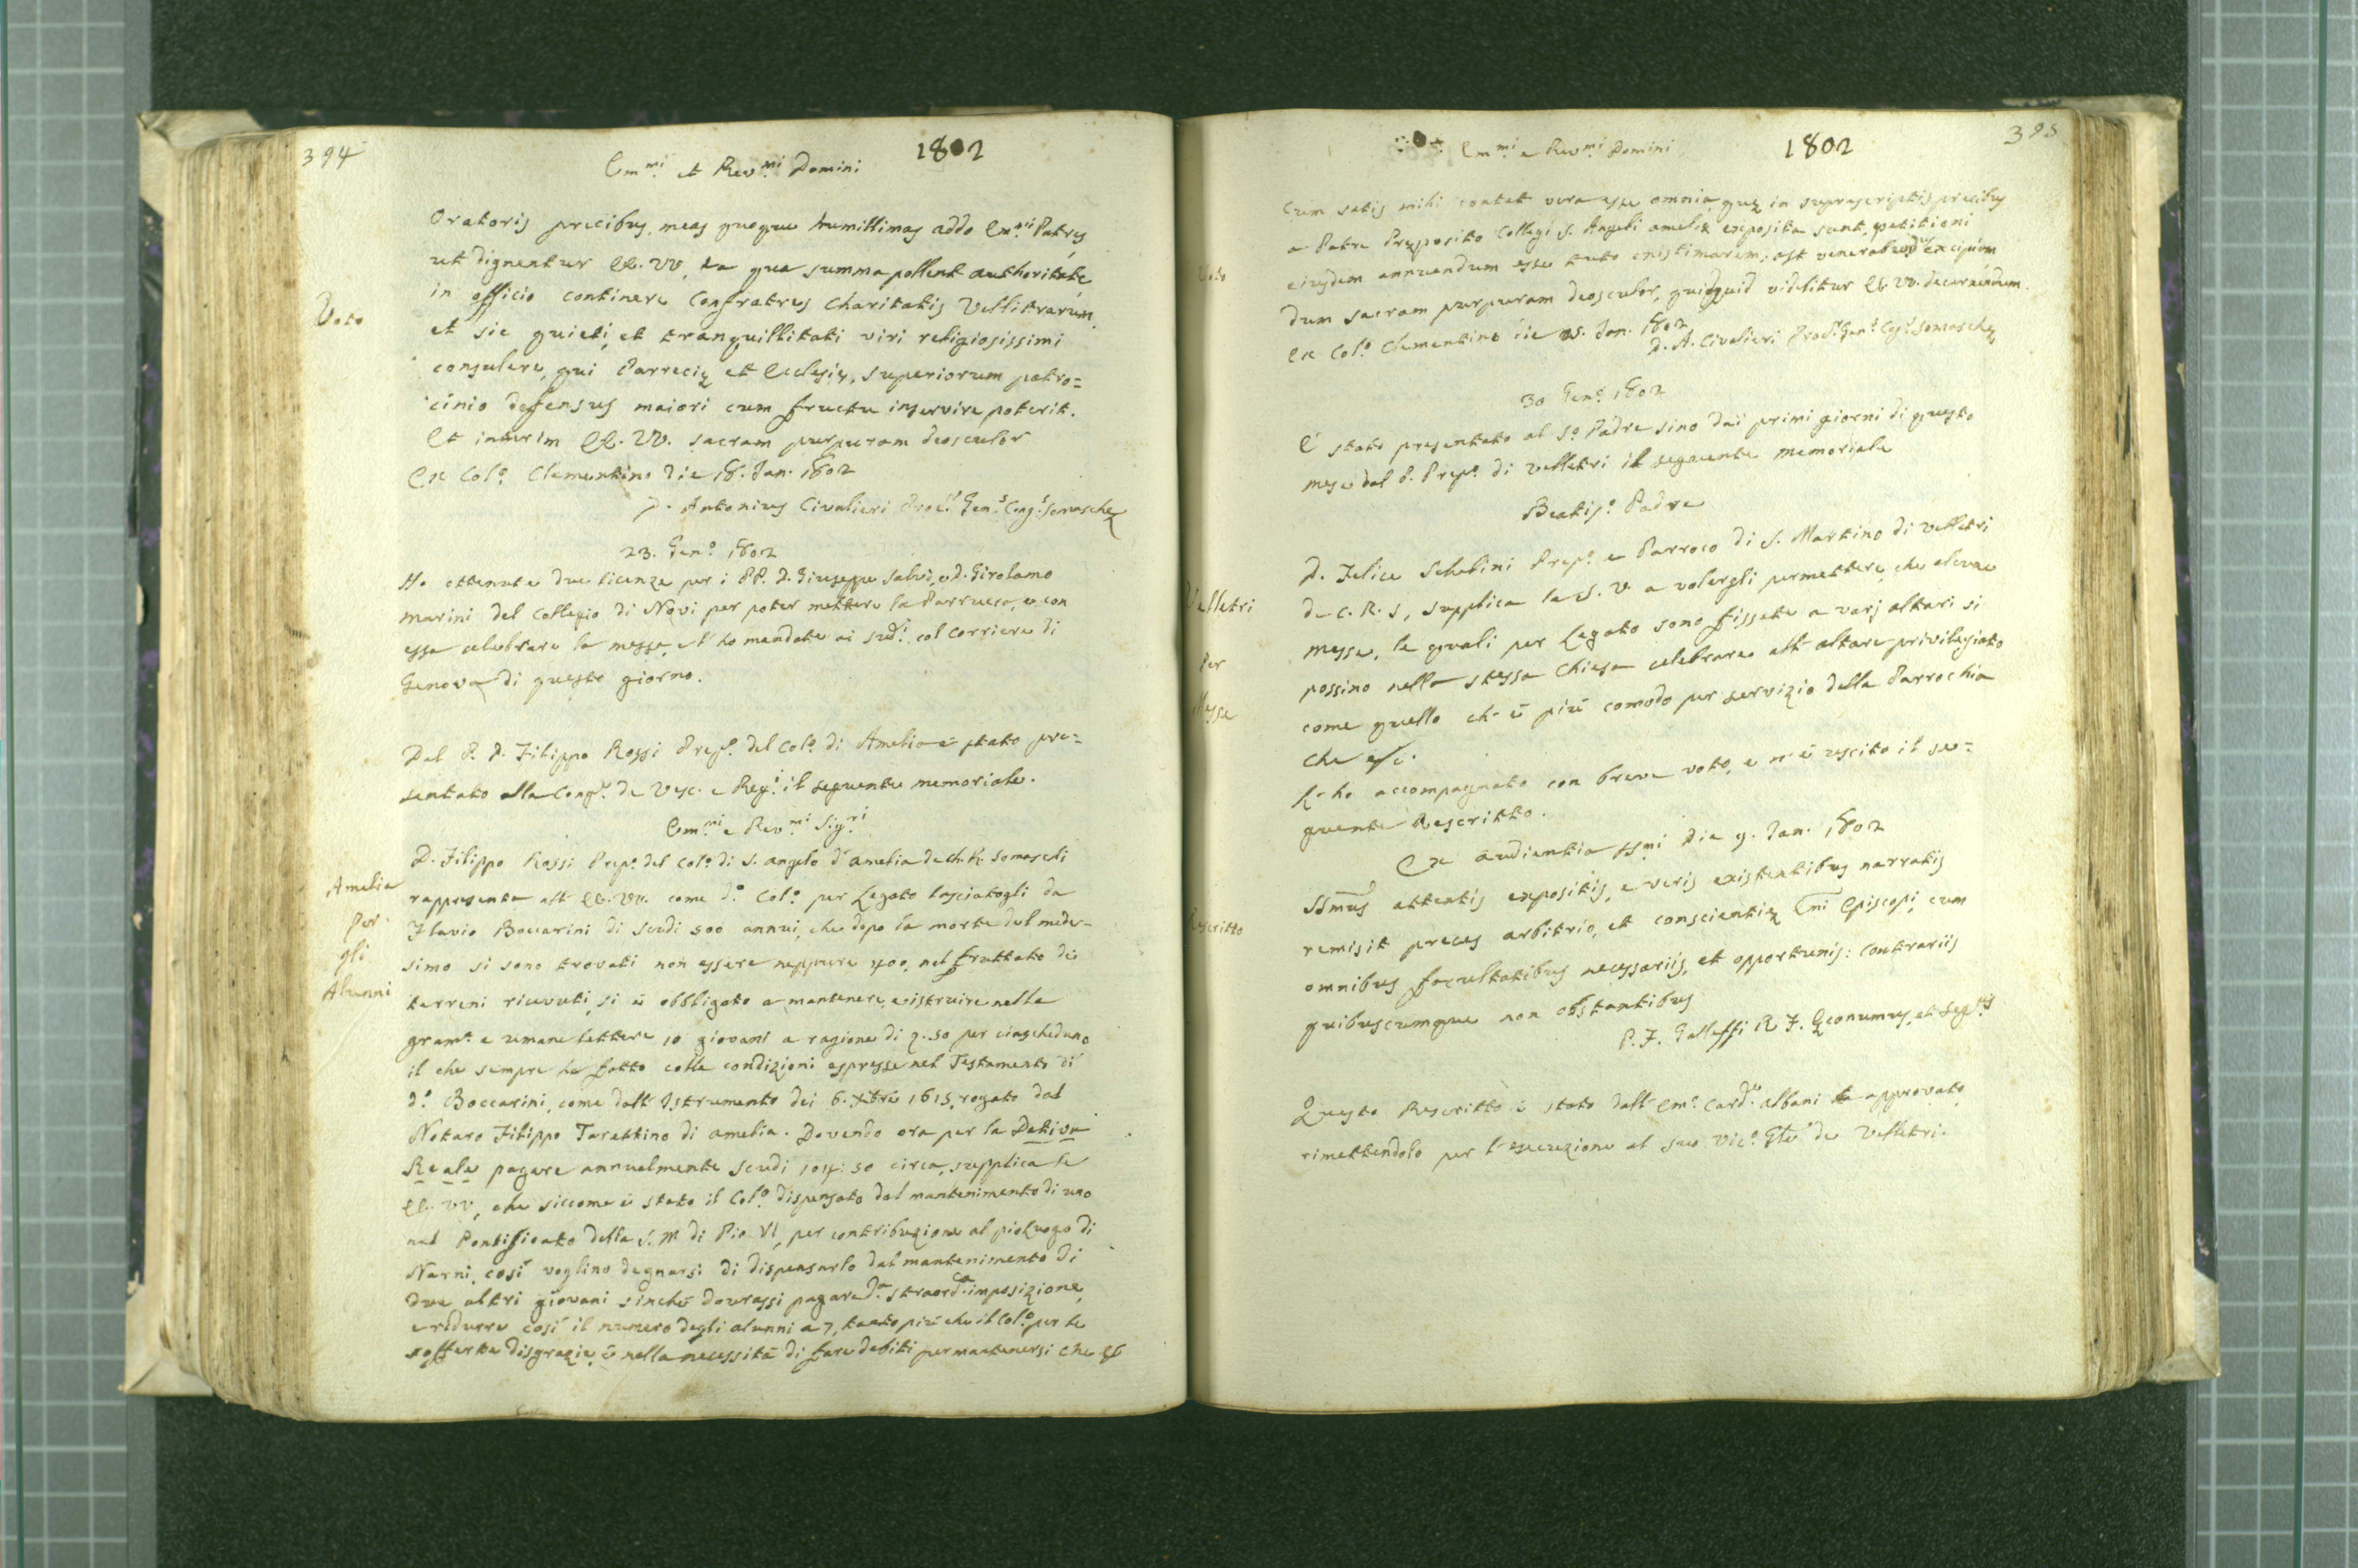 394
1802
Em.mi et Rev.mi Domini
Oratoris precibus, meas quoque humillimas addo Em.mi Patres
ut dignentur EE. VV. ea qua summa pollent authoritate
Voto
in officio continere Confratres Charitatis Vellitrarum
et sic quieti, et tranquillitati viri religiosissimi
consulere, qui Parreciæ et Ecclesiæ, superiorum patro=
cinio defensus maiori cum fructu inservire poterit.
Et interim EE. VV. sacram purpuram deosculor
Ex Col.o Clementino die 18. Jan. 1802
D. Antonius Civalieri Proc.r Gen.s Cong.s Somaschæ
23. Gen.o 1802
Ho ottenute due licenze per i PP. D. Giuseppe Salvi, e D. Girolamo
Marini del Collegio di Novi per poter mettere la Parrucca, e con
essa celebrare la messa, e l' ho mandate ai sud.i col Corriere di
Genova di questo giorno.
Dal P. D. Filippo Rossi Prep.o del Col.o di Amelia è stato pre=
sentato alla Cong.e de Vesc. e Reg.i il seguente memoriale.
Em.mi e Rev.mi Sig.ri
D. Filippo Rossi Prep.o del Col.o di S. Angelo d' Amelia de Ch. R. Somaschi
Amelia
Per
gli
Alunni
rappresenta all' EE. VV. come d.o Col.o per Legato lasciatogli da
Flavio Boccarini di scudi 500 annui, che dopo la morte del mede-
simo si sono trovati non essere neppure 400, nel fruttato di
terreni ricevuti, si è obbligato a mantenere, e istruire nelle
gram.e e umane lettere 10 giovani a ragione di 2.50 per ciascheduno
il che sempre ha fatto colle condizioni espresse nel Testamento di
d.o Boccarini, come dall' Istrumento dei 6. Xbre 1615, rogato dal
Notaro Filippo Tarettino di Amelia. Dovendo ora per la Dativa
Reale pagare annualmente scudi 104:50 circa, supplica le
EE. VV, che siccome è stato il Col.o dispensato dal mantenimento di uno
nel Pontificato della S. M. di Pio VI, per contribuzione al pio Luogo di
Narni, così voglino degnarsi di dispensarlo dal mantenimento di
due altri giovani sinchè dovrassi pagare d.a straord.a imposizione,
e ridurre così il numero degli alunni a 7, tanto più che il Col.o per le
sofferte disgrazie, è nella necessità di fare debiti per mantenersi Che &c
395
1802
Em.mi e Rev.mi Domini
Cum satis mihi constet vera esse omnia quæ in suprascriptis precibus
Voto
a Patre Præposito Collegi S. Angeli Ameliæ exposita sunt, petitioni
eiusdem annuendum esse tuto existimarem; ast venerabundus excipiam
dum sacram purpuram deosculor, quidquid videbitur EE. VV. decernendum.
Ex Col.o Clementino die 25. Jan. 1802
D. A. Civalieri Proc.r Gen.s Cog.s Somaschæ
30 Gen.o 1802
È stato presentato al S.o Padre sino dai primi giorni di questo
mese dal P. Prep.o di Velletri il seguente memoriale
Beatis.o Padre
Velletri
Per
Messe
D. Felice Schelini Prep.o e Parroco di S. Martino di Velletri
de C. R. S, supplica la S. V. a volergli permettere, che alcune
messe, le quali per Legato sono fissate a varj altari si
possino nella stessa Chiesa celebrare all' altare privilegiato
come quello ch' è più comodo per servizio della Parrochia
Che &c.
L' ho accompagnato con breve voto, e n' è uscito il se=
guente Rescritto.
Ex audientia SSmi Die 9. Jan. 1802
Rescritto
SSmus attentis expositis, e veris existentibus narratis
remisit preces arbitrio, et conscientiæ Emi Episcopi, cum
omnibus facultatibus necessariis, et opportunis: Contrariis
quibuscumque non obstantibus
P. F. Galleffi R. F. Œconumus, et Seg.rius
Questo Rescritto è stato dall' Em.o Card.e Albani approvato
rimettendolo per l' esecuzione al suo Vic.o Gle de Velletri.